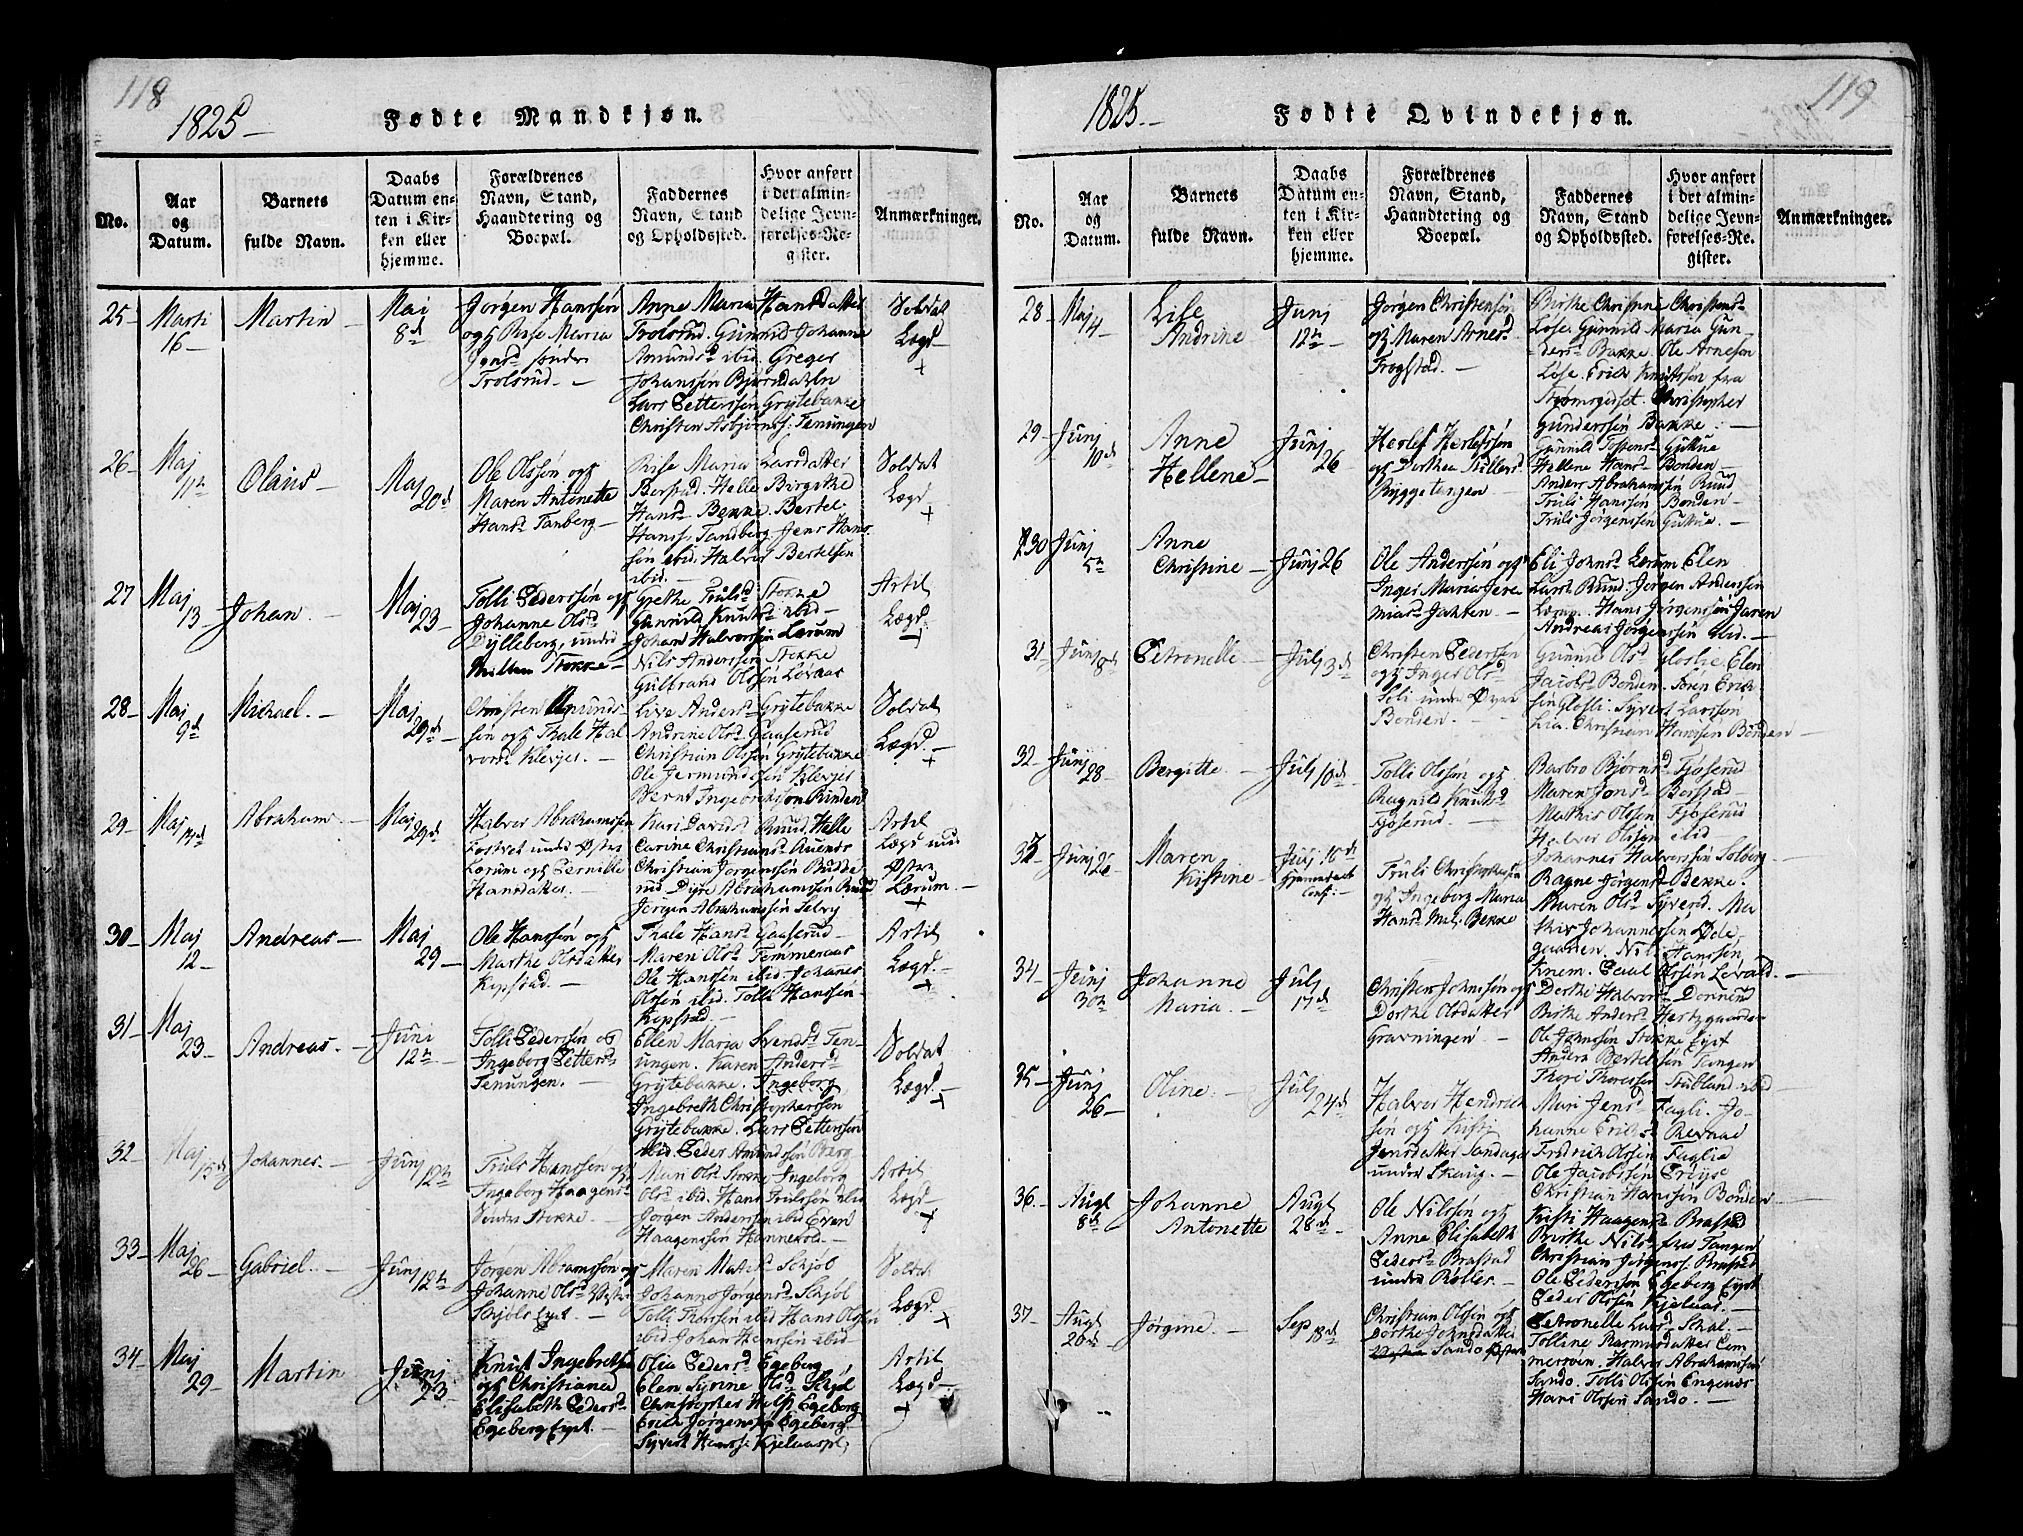 118
1825 –
Fødte Mandkjøn.
No.
Aar og Datum.
Barnets fulde Navn.
Daabs Datum enten i Kirken eller hjemme.
Forældrenes Navn, Stand, Haandtering og Boepæl.
Faddernes Navn, Stand og Opholdssted.
Hvor anført i det almindelige Jevnførelses-Register.
Anmærkninger.
25 –
Marti
16 –
Martin –
Mai
8d
Jørgen Hanssøn
og Rise Maria
Jensd søndre
Trolsrud. –
Anne Maria Hansdatter
Trolsrud. Gunnild Johanne
Amundsd ibid. Greger
Johanssøn Bjørndahlen
Lars Pettersøn Grytebakke
Christen Asbjørnss: Temungen
Soldat
Lægd –
+
26 –
Maj
11te
Olaus –
Maj
20d
Ole Olssøn og
Maren Antonette
Hansd Tanberg –
Rise Maria Larsdatter
Berstad. Helle Birgithe
Hansd Bekke. Bertel
Hanss. Tandberg. Jens Hans
søn ibid. Halvor Bertelsøn
ibid. –
Soldat
Lægd
+
27
Maj
13
Johan. –
Maj
23 –
Tolli Pederssøn og
Johanne Olsd
Dylleberg, under
Stokke –
Grethe Trulsd Stokke
Gunnild Knutsd ibid –
Johan Halvorssøn Lærum
Nils Anderssøn Stokke
Gulbrand Olssøn Løvaas
Artil
Lægd.
+
28 –
Maj
9d
Michael. –
Maj
29d –
Christen Amunds
søn og Thale Hal
vorsd Klevjer. –
Live Andersd Grytebakke
Andrine Olsd Gaaserud
Christian Olssøn Grytebakke
Ole Jermundssøn Klevjer
Bernt Ingebretssøn
Soldat
Lægd. –
+
29 –
Maj
Abraham –
Maj
29d
Halvor Abrahamssøn
under Østre
Lærum og Pernille
Hansdatter. –
Kari Davidsd Ruud. Helle
Carine Christiansd
Christian Jørgenssøn Budde
rud. Abrahamssøn Ruud
Jørgen Abrahamssøn
Artil
Lægd und
Østre
Lærum. –
+
30 –
Maj
12 –
Andreas –
Maj
29 –
Ole Hanssøn og
Marthe Olsdatter
Kopstad. –
Thale Hansd Gaaserud –
Maren Olsd Temmeraas
Ole Hanssøn ibid – Johanes
Olssøn ibid. Tolli Hanssøn
Kopstad. –
Artil
Lægd. –
+
31 –
Maj
23 –
Andreas. –
Juni
12te –
Tolli Pederssøn og
Ingeborg Pettersd
Temungen. –
Ellen Maria Svendsd Tem
ungen. Karen Andersd
Grytebakke. Ingeborg
Ingebreth Christophersøn
Grytebakke. Lars Petterssøn
ibid. Peder Amundssøn Berg
Soldat
Lægd. –
+
32 –
Maj
15d
Johannes. –
Junj
12te
Truls Hanssøn og
Ingeborg Haagensd
Søndre Stokke. –
Mari Olsd Stokke, Ingeborg
Olsd ibid. Hans Trulssøn ibid
Jørgen Anderssøn ibid Evert
Haagenssøn Hannevold. –
Artil
Lægd –
+
33 –
Maj
26 –
Gabriel. –
Junj
12te
Jørgen Abramssøn og
Johanne Olsd Vestre
Skjøl Eyet –
Maren Matisd Skjøl
Johanne Jørgensd Skjøl
Tolli Thorssøn ibid Hans Olssøn
ibid. Johan Hanssøn ibid –
Soldat
Lægd.
+
34 –
Maj
29 –
Martin
Junj
23 –
Knut Ingebretsen
og Christiana
Elisabeth Pedersd
Egeberg Eyet. –
Olia Pedersd Egeberg
Elen Syrine Olsd Skjøl
Christopher Egeberg
Erich Jørgenssøn Egeberg
Syvert Hanssø Kjelaaspl,
Artil
Lægd –
+
119
1825 –
Fødte Qvindekjøn.
No.
Aar og Datum.
Barnets fulde Navn.
Daabs Datum enten i Kirken eller hjemme.
Forældrenes Navn, Stand, Haandtering og Boepæl.
Faddernes Navn, Stand og Opholdssted.
Hvor anført i det almindelige Jevnførelses-Re. gister.
Anmærkninger.
28 –
Maj
4
Lise
Andrine
Junj
12te –
Jørgen Christensøn
og Maren Arnesd
Frogstad. –
Birthe Christine Christensd
Løse. Gunnild Maria Gun
dersd Bakke. Ole Arnesøn
Løse. Erich Knutssøn fra
Strømsgodset. Christopher
Gunderssøn Bakke. –
29 –
Junj
10d
Anne
Hellene –
Junj
26
Herlof Herlofssøn
og Dorthea
Ryggetangen –
Gunnild Tostensd Gutkue
Hellene Hansd Bonden –
Anders Abrahamssøn Ruud
Truls Hanssøn Bonden
Truls Jørgenssøn Gutkue. –
30
Junj
5te
Anne
Christine –
Junj 26
Ole Anderssøn og
Inger Maria Jere
miasd Jakten –
Eli Johnsd Lærum Elen
Larsd Ruud. Jørgen Anderssøn
Lærum. Hans Jørgenssøn Jaren
Andreas Jørgenssøn ibid. –
31
Junj
8d
Petronelle –
Julj 3d
Christen Pederssøn
og Inger Olsd
Øvre
Bonden. –
Gunnild Olsd Gloslie Elen
Jacobsd Bonden. Søren Erich
søn Glosli. Syvert Larsson
Lia. Christian Hanssøn Bonden –
32
Junj
28 –
Bergitte. –
Julj 10d
Tolli Olssøn og
Ragnild Knutsd
Fjøserud. –
Barbro Bjørnsd Fjøserud
Maren Jonsd Berstad –
Mathis Olssøn Fjøserud
Halvor Olssøn ibid –
Johannes Halvorssøn Solberg
33
Junj
26
Maren
Kristine –
Julj 10d
Hjemmedøbt
Conf: –
Truls Christophersøn
og Ingeborg Maria
Hansd Bekke
Ragne Jørgensd Bekke.
Maren Olsd Syverud. Ma
this Johannessøn Øde
gaarden. Nils Hanssøn
Knem. Povel Olssøn Løvald. –
34 –
Junj
30te
Johanne
Maria. –
Julj
17d
Christen Johnssøn og
Dorthe Olsdatter
Gravningen –
Dorthe Halvorsd Donnerud
Birthe Andersd Hertzgaarden
Ole Johnssøn Stokke Eyet
Anders Bertelssøn Tangen
Thore Thoressøn Stubland ibid –
35 –
Junj
26 –
Oline. –
Julj
24d
Halvor Hendrich
søn og Kirsti
Jensdatter Sandager
under Skaug. –
Mari Jensd Fagli. Jo
hanne Erichsd Revnae
Fredrich Olssøn Faglia
Ole Jacobssøn Erigse
Christian Hanssøn Bonden –
36 –
Augt
8d
Johanne
Antonette
Augt
28d –
Ole Nilssøn og
Anne Elisabeth
Pedersd Brastad
under Bøller –
Kirsti Haagensd Brastad
Birthe Nilsd fra Tangen
Christian Jørgenss: Brastad
Ole Pedersson Egeberg Eyet
Peder Olssøn Kjelaas. –
37 –
Augt
20d
Jørgine. –
Sep
18d
Christian Olssøn og
Dorthe Johnsdatter
Sando Østre
Petronelle Larsd Skal –
Tolline Rasmusdatter Tem
merøen. Halvor Abrahamssøn
Sando. Tolli Olssøn Engenæs
Hans Olssøn Sando. –